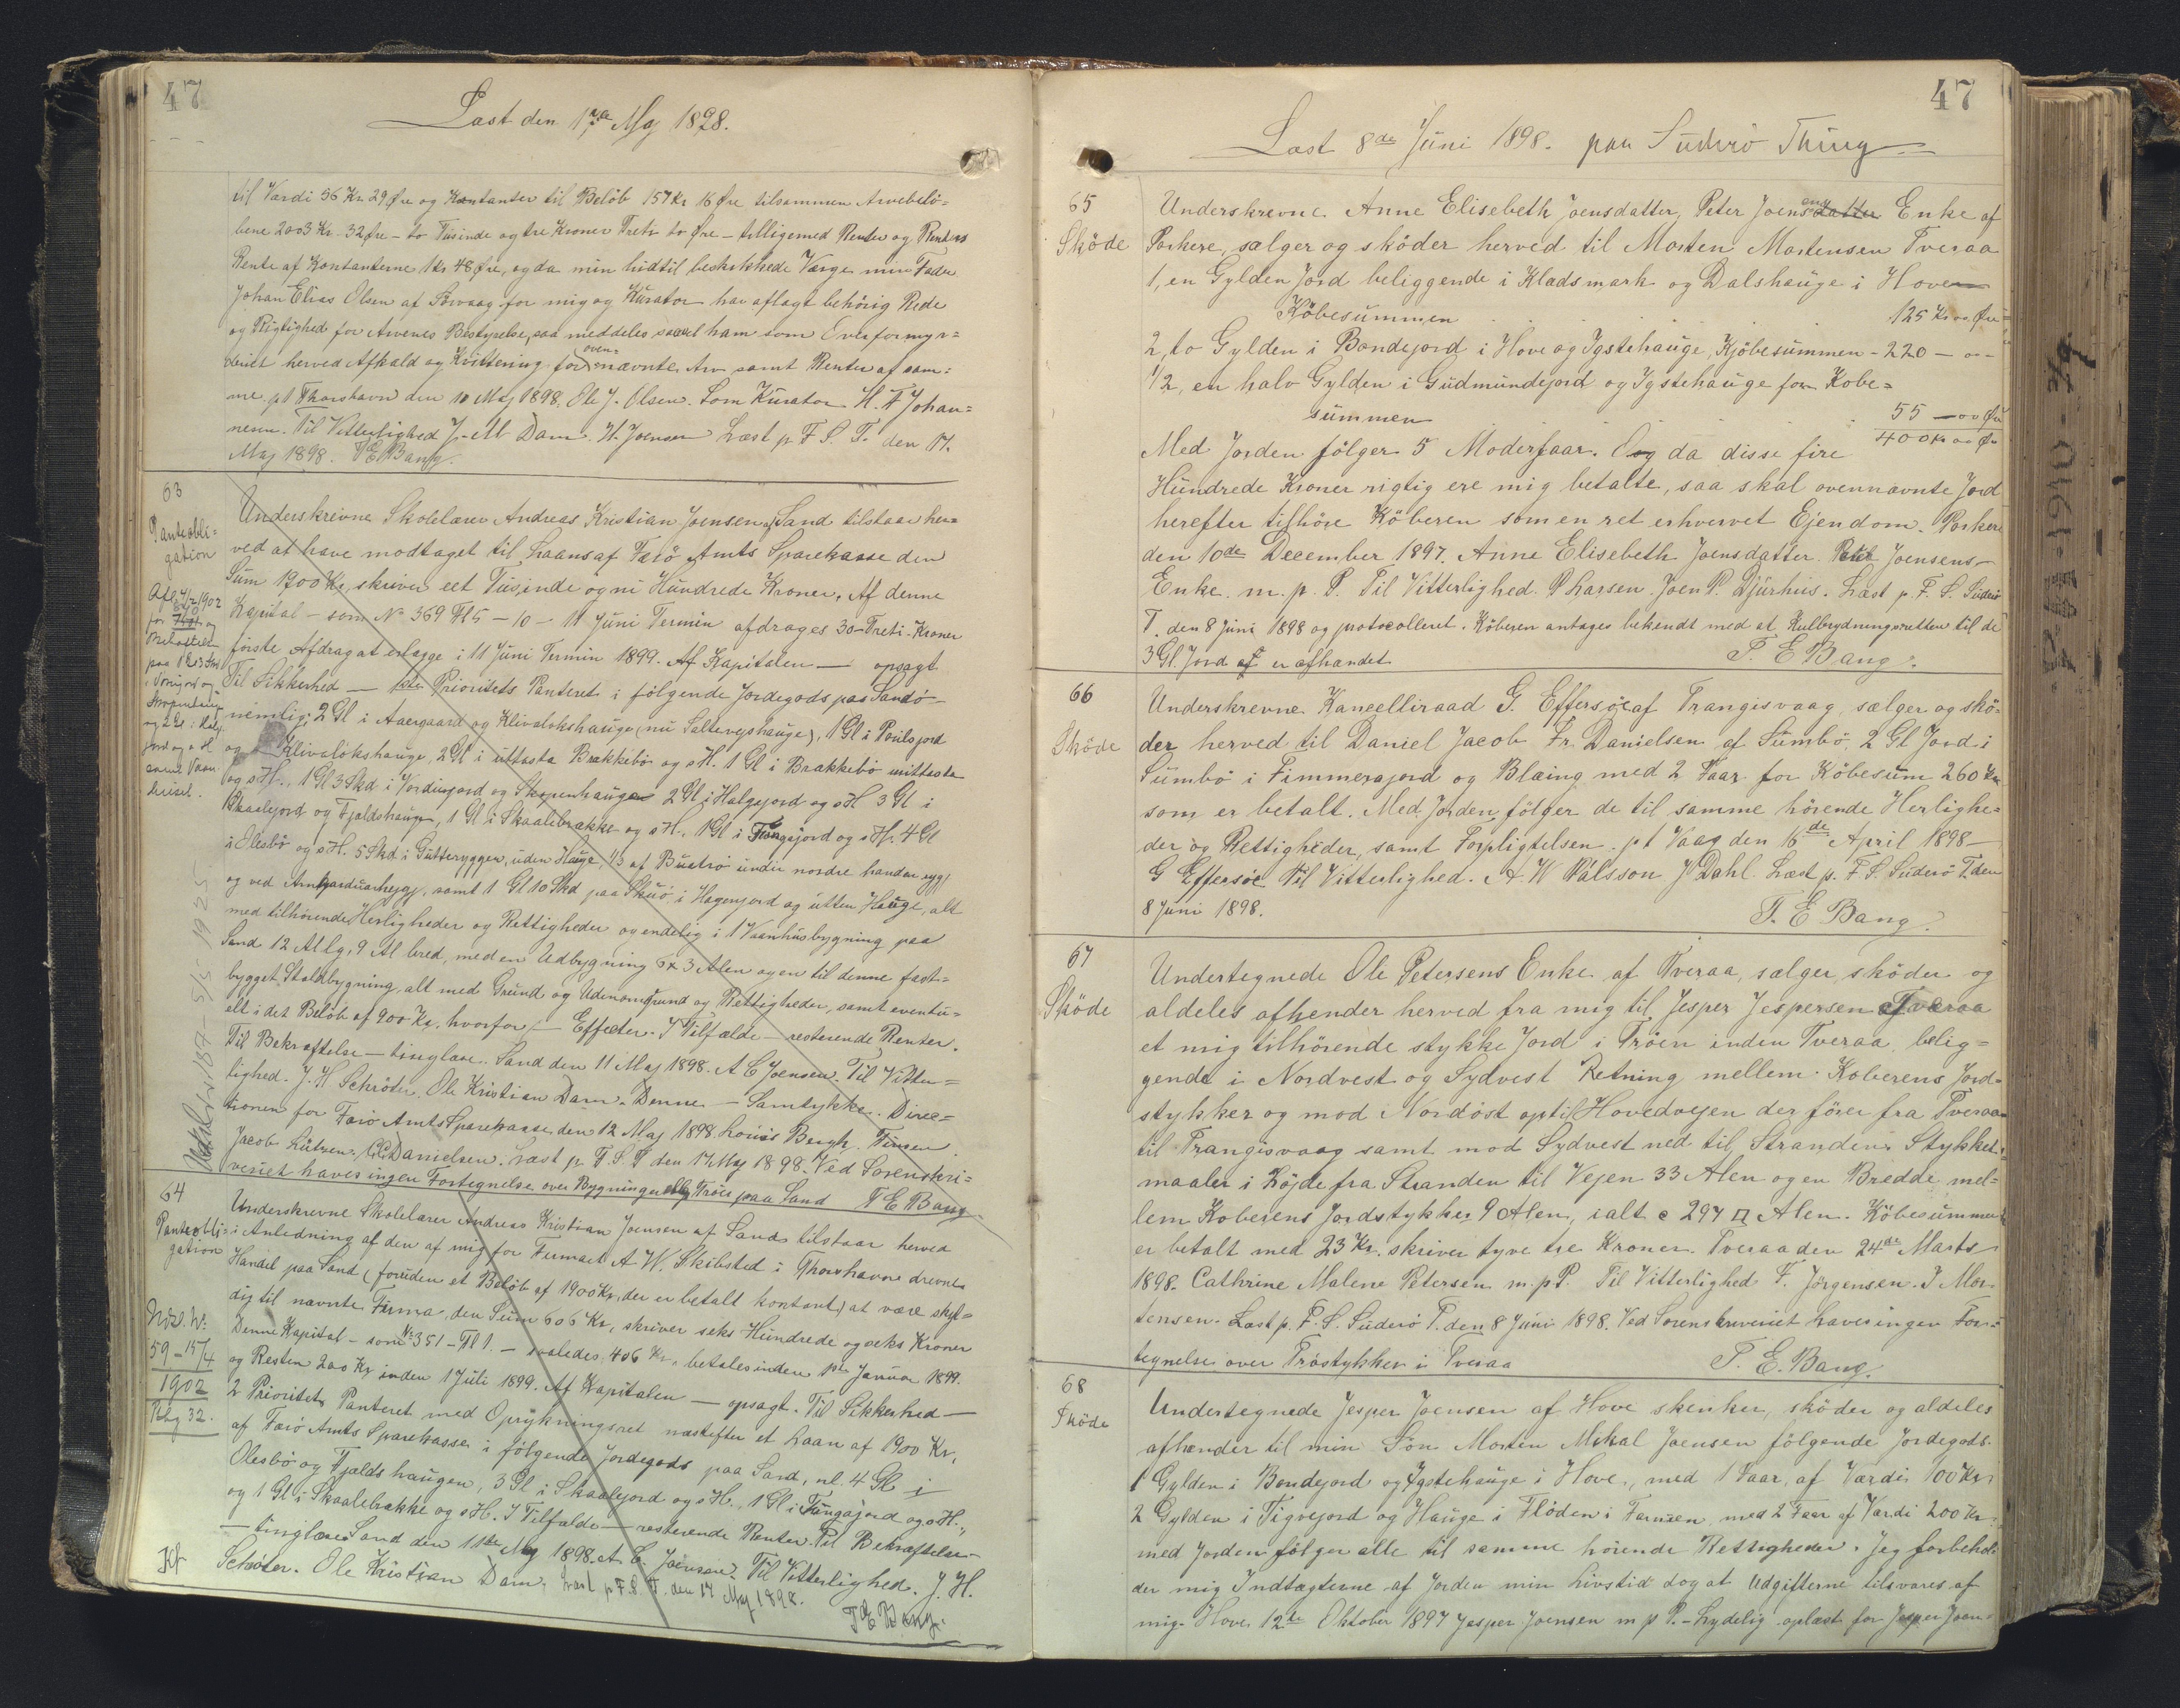 47
Læst den 17de Maj 1898.
til Værdi 56 Kr 29 Øre og Kontanter til Beløb 157 Kr 16 Øre tilsammen Arvebelö=
bene 2003 Kr. 32 Øre – to Tusinde og tre Kroner Treti to Øre – tilligemed Renter og Renters
Rente af Kontanterne 1 Kr 48 Øre, og da min hidtil beskikkede Værge min Fader
Johan Elias Olsen af Sørvaag for mig og Kurator har aflagt behörig Rede
og Rigtighed for Arvenes Bestyrelse, saa meddeles saavel ham som Overformyn=
deriet herved Afkald og Kvittering for ovennævnte Arv samt Renter af sam=
me. pt Thorshavn den 10 Maj 1898. Ole J. Olsen. Som Kurator H. F Johan=
nesen. Til Vitterlighed J. M Dam. H. Joensen Læst p. F. S. T. den 17.
Maj 1898. T E Bang.
63
Panteobli=
gation
Underskrevne Skolelærer Andreas Kristian Joensen af Sand tilstaar her=
ved at have modtaget til Laans af Færö Amts Sparekasse den
Sum 1900 Kr, skriver eet Tusinde og ni Hundrede Kroner. Af denne
Kapital – som No 369 Fl 5 – 10 – 11 Juni Termin afdrages 30 – Treti – Kroner
förste Afdrag at erlægge i 11 Juni Termin 1899. Af Kapitalen — opsagt
Til Sikkerhed — 1ste Prioritets Panteret i fölgende Jordegods paa Sandö –
nemlig: 2 Gl i Aaergaard og Klivalokshauge (nu Saltevejshauge), 1 Gl i Poulsjord
og Klivalokshauge, 2 Gl i uttasta Brekkebö og s H. 1 Gl i Brækkebö mittasta
og s H., 1 Gl 3 Skd i Vordinjord og Skopenhauge 2 Gl i Halgajord og s H 3 Gl i
Skaalejord og Fjaldshauge, 1 Gl i Skaalebrække og s H., 1 Gl i Tüngajord og s H. 4 Gl
i Olesbö og s H. 5 Skd i Gutteryggen, uden Hauge, 1/3 af Buströ undir nordre handar rygg
og ved samt 1 Gl 10 Skd paa Skuö i Hagenjord og utten Hauge, alt
med tilhörende Herligheder og Rettigheder og endelig i 1 Vaanhusbygning paa
Sand 12 Al lg, 9 Al bred, med en Udbygning 6 x 3 Alen og en til denne fast=
bygget Staldbygning, alt med Grund og Udenomsgrund og Rettigheder, samt eventu=
elt i det Belöb af 900 Kr. hvorfor – Effecter. I Tilfælde – resterende Renter.
Til Bekræftelse – tinglæse. Sand den 11 Maj 1898. A C Joensen. Til Vitter=
lighed. J. H Schröter. Ole Kristian Dam. Denne – Samtykke. Direc=
tionen for Færö Amts Sparekasse den 12 Maj 1898. Louis Bergh. Finsen.
Jacob Lützen. Danielsen. Læst p F. S. T den 17 Maj 1898. Ved Sorenskri=
veriet haves ingen Fortegnelse over Bygninger eller Tröer paa Sand T E Bang
64
Panteobli=
gation
Underskrevne Skolelærer Andreas Kristian Joensen af Sand tilstaar herved
i Anledning af den af mig for Firmaet A W. Skibsted i Thorshavn drevne
Handel paa Sand (foruden et Beløb af 1900 Kr, der er betalt kontant) at være skyl=
dig til nævnte Firma den Sum 606 Kr, skriver seks Hundrede og seks Kroner
Denne Kapital – som No 351 – Fl 1. – saaledes, 406 Kr. betales inden 1ste Januar 1899.
og Resten 200 Kr inden 1 Juli 1899. Af Kapitalen — opsagt. Til Sikkerhed —
2 Prioritets Panteret med Oprykningsret næstefter et Laan af 1900 Kr.
af Færö Amts Sparekasse i fölgende Jordegods paa Sand, nl. 4 Gl i
Olesbö og Fjaldshaugen, 3 Gl i Skaalejord og s H., 1 Gl i Tüngajord og s H.,
og 1 Gl i Skaalebrække og s H. I Tilfælde – resterende Renter. Til Bekræftelse –
– tinglæse Sand den 11te Maj 1898. A C. Joensen. Til Vitterlighed. J. H.
Schröter. Ole Kristian Dam. Læst p F. S. T. den 17 Maj 1898.
T E Bang.
59 – 15/4
1902
47
Læst 8de Juni 1898. paa Suderö Thing
65
Sköde
Underskrevne Anne Elisebeth Joensdatter, Peter Joensens Enke af
Porkere sælger og sköder herved til Morten Mortensen Tveraa
1, en Gylden Jord beliggende i Kladsmark og Dalshauge i Hove
Köbesummen 125 Kr 00 Øre
2, to Gylden i Bondejord i Hove og Ygstehauge, Kjöbesummen - 220 – 00 –
1/2, en halv Gylden i Gudmundejord og Ygstehauge for Kobe=
summen 55 – 00 Øre
400 Kr 00 Ør
Med Jorden fölger 5 Moderfaar. Og da disse fire
Hundrede Kroner rigtig ere mig betalte, saa skal ovennævnte Jord
herefter tilhöre Köberen som en ret erhvervet Ejendom. Porkere
den 10de December 1897. Anne Elisebeth Joensdatter Peter Joensens
Enke. m. p. P. Til Vitterlighed. P Larsen. Joen P. Djurhus. Læst p. F. S. Suderö
T. den 8 Juni 1898 og protocolleret. Köberen antages bekendt med at Kulbrydningsretten til de
3 Gl. Jord er afhandet T. E Bang.
66
Sköde
Underskrevne Kancelliraad G. Effersöe af Trangisvaag, sælger og skö=
der herved til Daniel Jacob Fr. Danielsen af Sumbö 2 Gl Jord i
Sumbö i Fimmerajord og Blæing med 2 Faar for Köbesum 260 Kr
som er betalt. Med Jorden fölger de til samme hörende Herlighe=
der og Rettigheder, samt Forpligtelsen. pt Vaag den 16de April 1898 –
G Effersöe Til Vitterlighed. A. W Pálsson J Dahl. Læst p. F. S. Suderö T. den
8 Juni 1898. T. E Bang.
67
Sköde
Undertegnede Ole Petersens Enke af Tveraa, sælger, sköder og
aldeles afhender herved fra mig til Jesper Jespersen af Tveraa
et mig tilhörende stykke Jord i Tröen inden Tveraa belig=
gende i Nordvest og Sydvest Retning mellem Koberens Jord=
stykker og mod Nordöst op til Hovedvejen der förer fra Tveraa
til Trangisvaag samt mod Sydvest ned til Stranden. Stykket
maaler i Höjde fra Stranden til Vejen 33 Alen og en Bredde mel=
lem Koberens Jordstykker 9 Alen, ialt c 297 □ Alen. Köbesummen
er betalt med 23 Kr. skriver tyve tre Kroner. Tveraa den 24de Marts
1898. Cathrine Malene Petersen m. p P. Til Vitterlighed F. Jörgensen. J Mor=
tensen. Læst p. F. S. Suderö T. den 8 Juni 1898. Ved Sorenskriveriet haves ingen For=
tegnelse over Tröstykker i Tveraa T. E. Bang.
68
Sköde
Undertegnede Jesper Joensen af Hove skenker, sköder og aldeles
afhender til min Sön Morten Mikal Joensen fölgende Jordegods.
1 Gylden i Bondejord og Ygstehauge i Hove, med 1 Faar, af Værdi 100 Kr.
2 Gylden i Tigvejord og Hauge i Flöden i Famien, med 2 Faar af Værdi 200 Kr.
med Jorden fölger alle til samme hörende Rettigheder. Jeg forbehol=
der mig Indtægterne af Jorden min Livstid dog at Udgifterne tilsvares af
mig. Hove 12te Oktober 1897 Jesper Joensen m p P. – Lydelig oplæst for Jesper Joen=